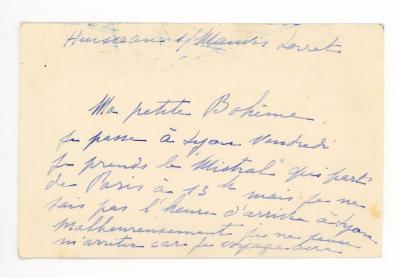 Huisseau s/ Mauves Loiret
Ma petite Bohême,
Je passe à Lyon Vendredi
je prends le "Mistral" qui part
de Paris à 13 h mais je ne
sais pas l'heure d'arrivée à Lyon.
Malheureusement je ne peux
m'arrêter car je voyage avec